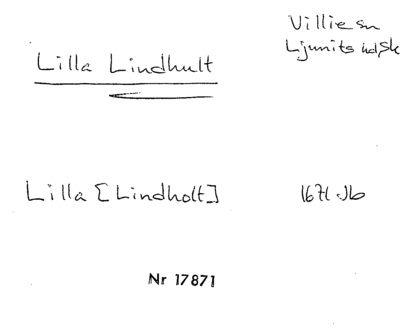 Villie sn
Ljunits hd Sk
Lilla Lindhult
Lilla [Lindholt] 1671 Jb
Nr 17871